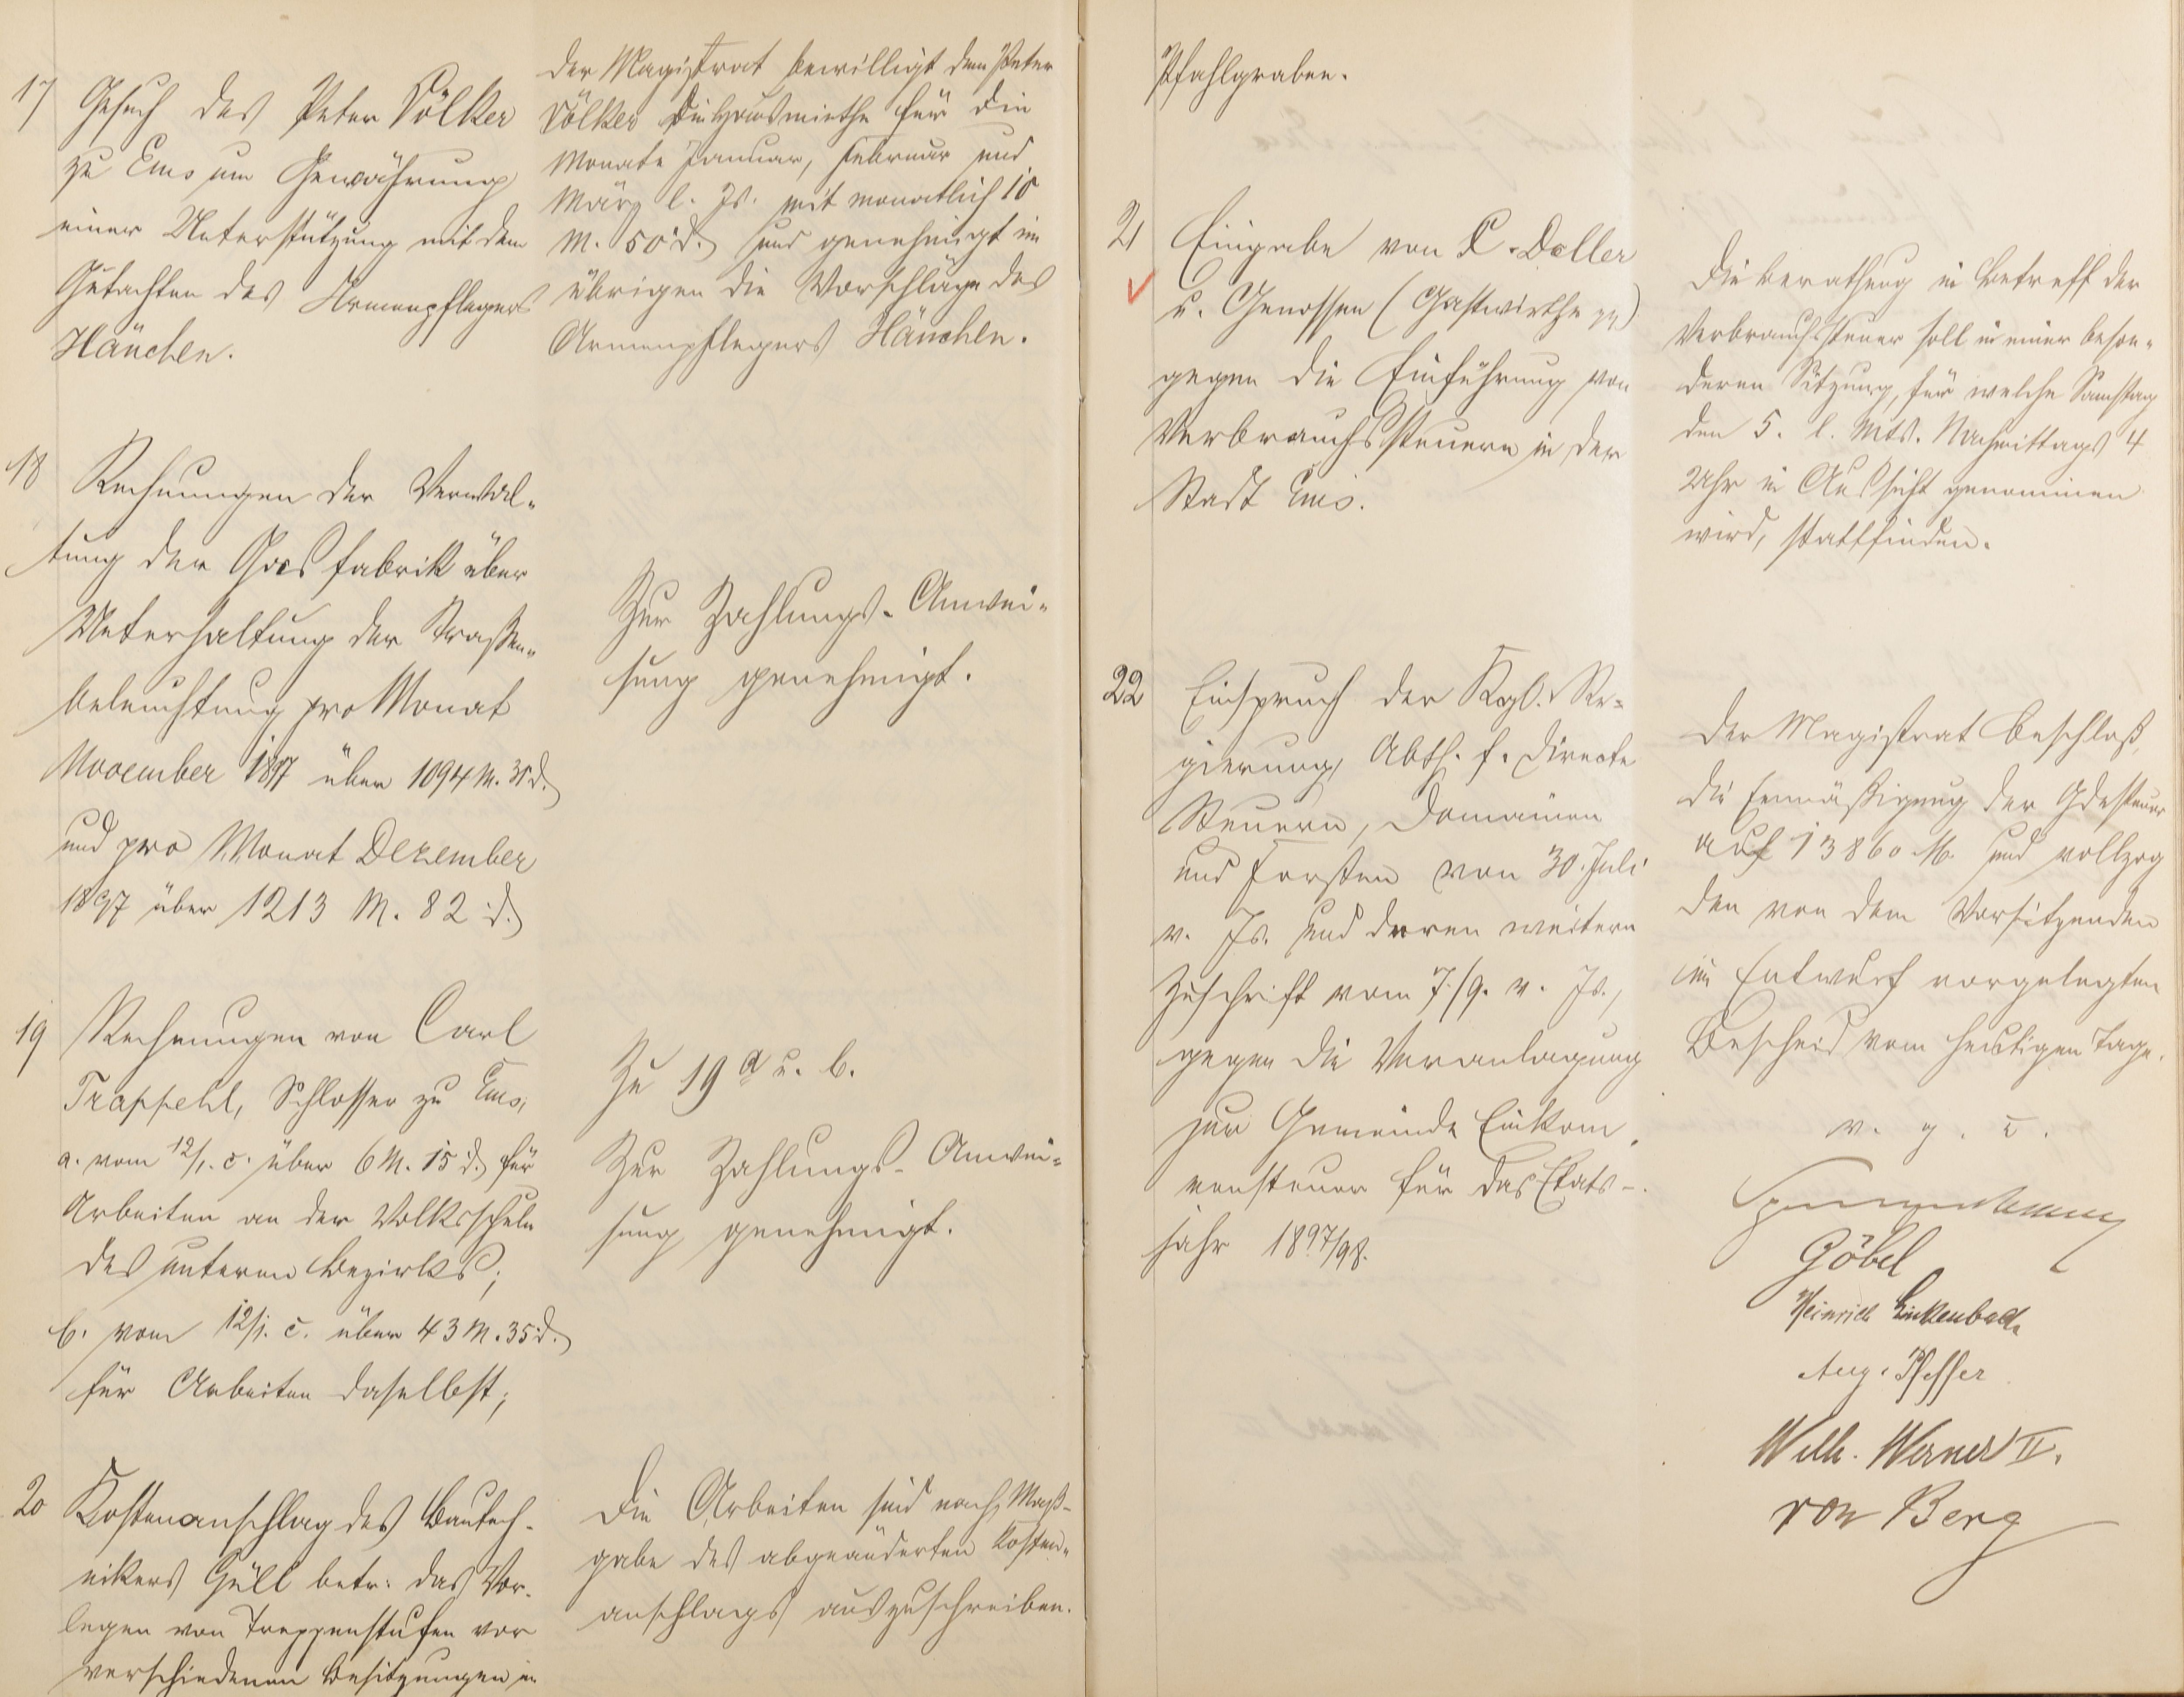 17
Gesuch des Peter Völker
zu Ems um Gewährung
einer Unterstützung mit dem
Gutachten des Armenpflegers
Hänchen.
Der Magistrat bewilligt dem Peter
Völker die Hausmiethe für die
Monate Januar, Februar und
März l. Js. mit monatlich 10
M. 50 d. und genehmigt im
übrigen die Vorschläge des
Armenpflegers Hänchen.
18
Rechnungen der Verwal-
tung der Gasfabrik über
Unterhaltung der Straßen-
beleuchtung pro Monat
November 1897 über 1094 M. 35 d.
und pro Monat Dezember
1897 über 1213 M. 82 d.
Zur Zahlungs-Anwei-
sung genehmigt.
19
Rechnungen von Carl
Trappehl, Schlosser zu Ems,
a. vom 12/1. c. über 6 M. 15 d. für
Arbeiten an der Volksschule
des unteren Bezirks;
b. vom 12/1. c. über 43 M. 35 d.
für Arbeiten daselbst;
Zu 19 a u. b.
Zur Zahlungs-Anwei-
sung genehmigt.
20
Kostenanschlag des Bautech-
nikers Güll betr. das Vor-
legen von Treppenstufen vor
verschiedenen Besitzungen im
Die Arbeiten sind nach Maß-
gabe des abgeänderten Kosten-
anschlags auszuschreiben.
Pfahlgraben.
21
Eingabe von C. Doller
u. Genossen (Gastwirthe pp)
gegen die Einführung von
Verbrauchssteuern in der
Stadt Ems.
Die Berathung in Betreff der
Verbrauchssteuer soll in einer beson-
deren Sitzung, für welche Samstag
den 5. l. Mts. Nachmittags 4
Uhr in Aussicht genommen
wird, stattfinden.
22
Einspruch der Kgl. Re-
gierung, Abth. f. directe
Steuern, Domainen
und Forsten vom 30. Juli
v. Js. und deren weitern
Zuschrift vom 7./9. v. Js.,
gegen die Veranlagung
zur Gemeinde Einkom-
mensteuer für das Etats-
jahr 1897/98.
Der Magistrat beschloß,
die Ermäßigung der Gdesteuer
auf 13860 M. und vollzog
den von dem Vorsitzenden
im Entwurf vorgelegten
Bescheid vom heutigen Tage.
v. g. u.
Göbel
Heinrich Linkenbach
Aug. Pfeffer
Wilh. Werner II.
von Berg